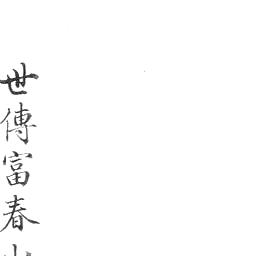 世傳富春